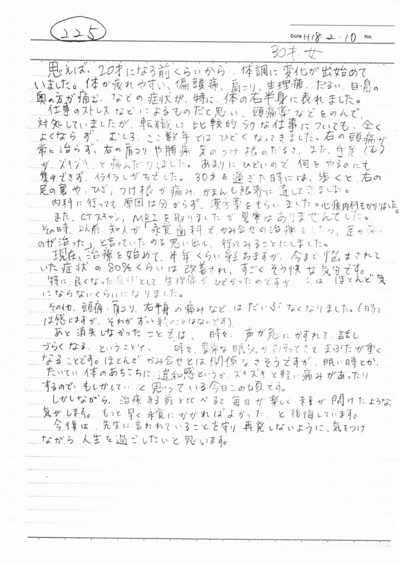 225
Date H18.2.10 No.
30才 女
思えば、20才になる前くらいから、体調に変化が出始めて
いました。体が疲れやすい、偏頭痛、肩こり、生理痛、だるい、目の
奥の方が痛む、などの症状が、特に、体の右半身に表れました。
仕事のストレスなどによるものだと思い、頭痛薬などをのんで、
対処していましたが、転職し、比較的ラクな仕事についても、全く
よくならず、むしろ、ここ数年ではひどくなってきました。右の頭痛が
常に治らず、右の肩こりや腰痛、足のつけ根のだるさ、また、
が、ズキズキと痛んだりしました。あまりにひどいので何をやるのにも
集中できず、イライラしがちでした。30才を過ぎた時には、歩くと、右の
足の裏や、ひざ、つけ根が痛み、がまんも限界に達してきました。
内科に行っても原因は分からず、漢方薬をもらいました。心療内科もかかりました。
また、CTスキャン、MRIを取りましたが異常はありませんでした。
その時、以前、知人が、歯科でかみ合せの治療をしたら、足が痛い
のが治った」と言っていたのを思い出し、行ってみることにしました。
現在、治療を始めて、半年くらい経ちますが、今まで悩まされて
いた症状の80%くらいは改善され、すごくそう快な気分です。
特に、良くなった症状として、生理痛がひどかったのですが、ほとんど気
にならないくらいになりました。
その他、頭痛、肩こり、右半身の痛みなどはだいぶなくなりました。(時々
は感じますが、それがずっと続くことはないです)
あと消失しなかったことでは、時々、声が急にかすれて、話し
づらくなる、ということや、時々、異常な眠気がおそってきて、まぶたが重く
なることです。ほとんどかみ合せとは関係なさそうですが、眠い時とか、
たいてい体のあちこちに違和感というか、ズキズキと軽い痛みがあったり
するので、もしかしていと思っている今日この頃です。
しかしながら、治療する前と比べると毎日が楽しく、未来が開けたような
気がします。もっと早く歯科にかかればよかった、と後悔しています。
今後は、先生に言われていることを守り、再発しないように、気をつけ
ながら人生を過ごしたいと思います。